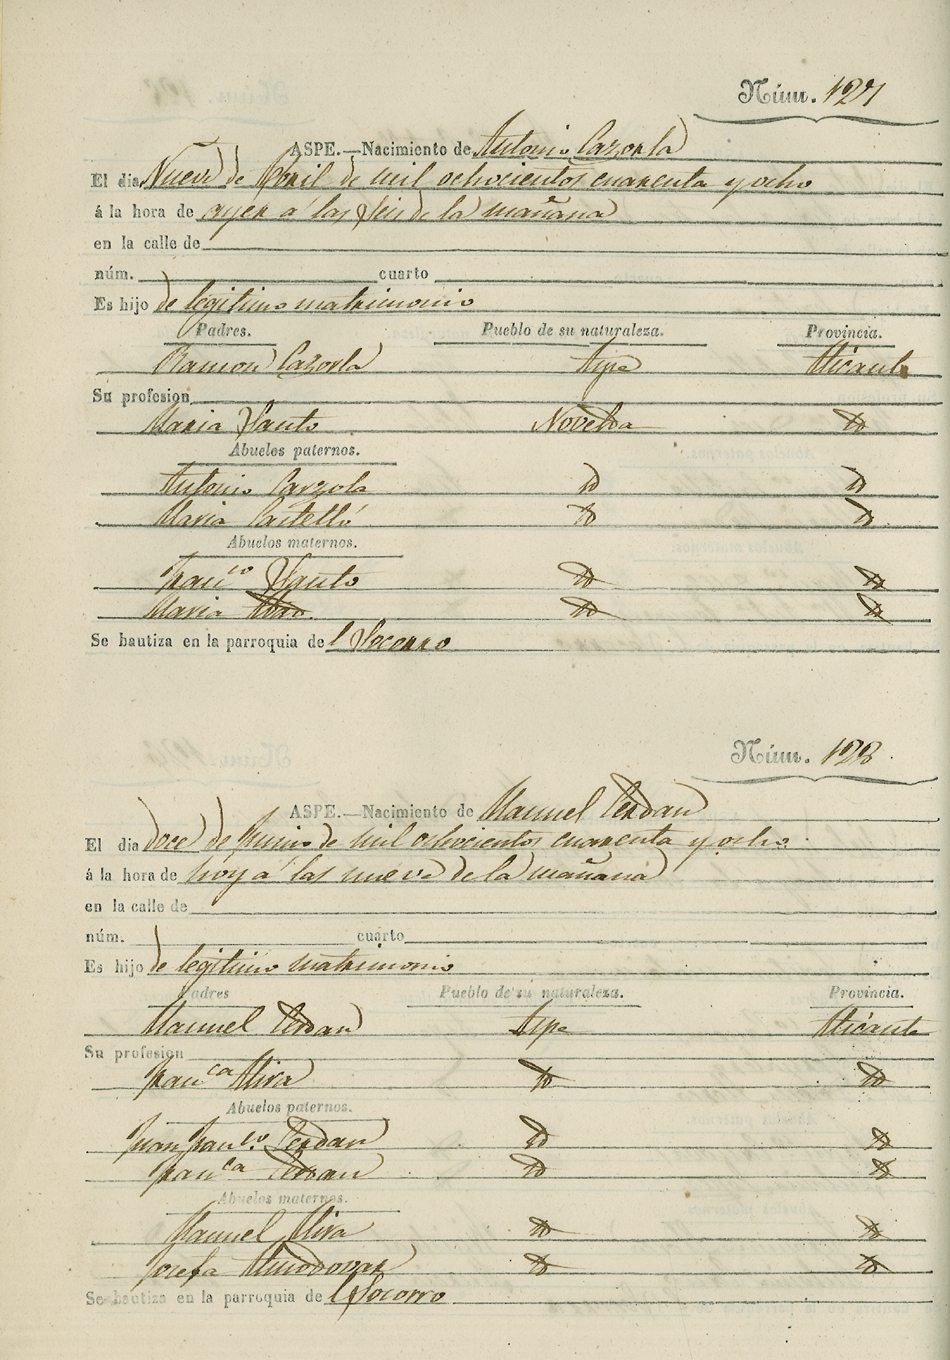 Núm. 127
ASPE.—Nacimiento de Antonio Cazorla
El dia Nueve de Abril de mil ochocientos cuarenta y ocho
á la hora de ayer á las seis de la mañana
en la calle de
núm. cuarto
Es hijo de legitimo matrimonio
Padres. Pueblo de su naturaleza. Provincia.
Ramon Cazorla Aspe Alicante
Su profesion
Maria Santo Novelda Yd
Abuelos paternos.
Antonio Carzola Yd Yd
Maria Castelló Yd Yd
Abuelos maternos.
Franco Santo Yd Yd
Maria Yd Yd
Se bautiza en la parroquia del Socorro
Núm. 128
ASPE.—Nacimiento de Manuel Cerdan
El dia doce de Junio de mil ochocientos cuarenta y ocho
á la hora de hoy á las nueve de la mañana
en la calle de
núm. cuarto
Es hijo de legitimo matrimonio
Padres Pueblo de su naturaleza. Provincia.
Manuel Cerdan Aspe Alicante
Su profesion
Franca Mira Yd Yd
Abuelos paternos.
Juan Franco Cerdan Yd Yd
Franca Cerdan Yd Yd
Abuelos maternos.
Manuel Mira Yd Yd
Josefa Almodovar Yd Yd
Se bautiza en la parroquia de l Socorro